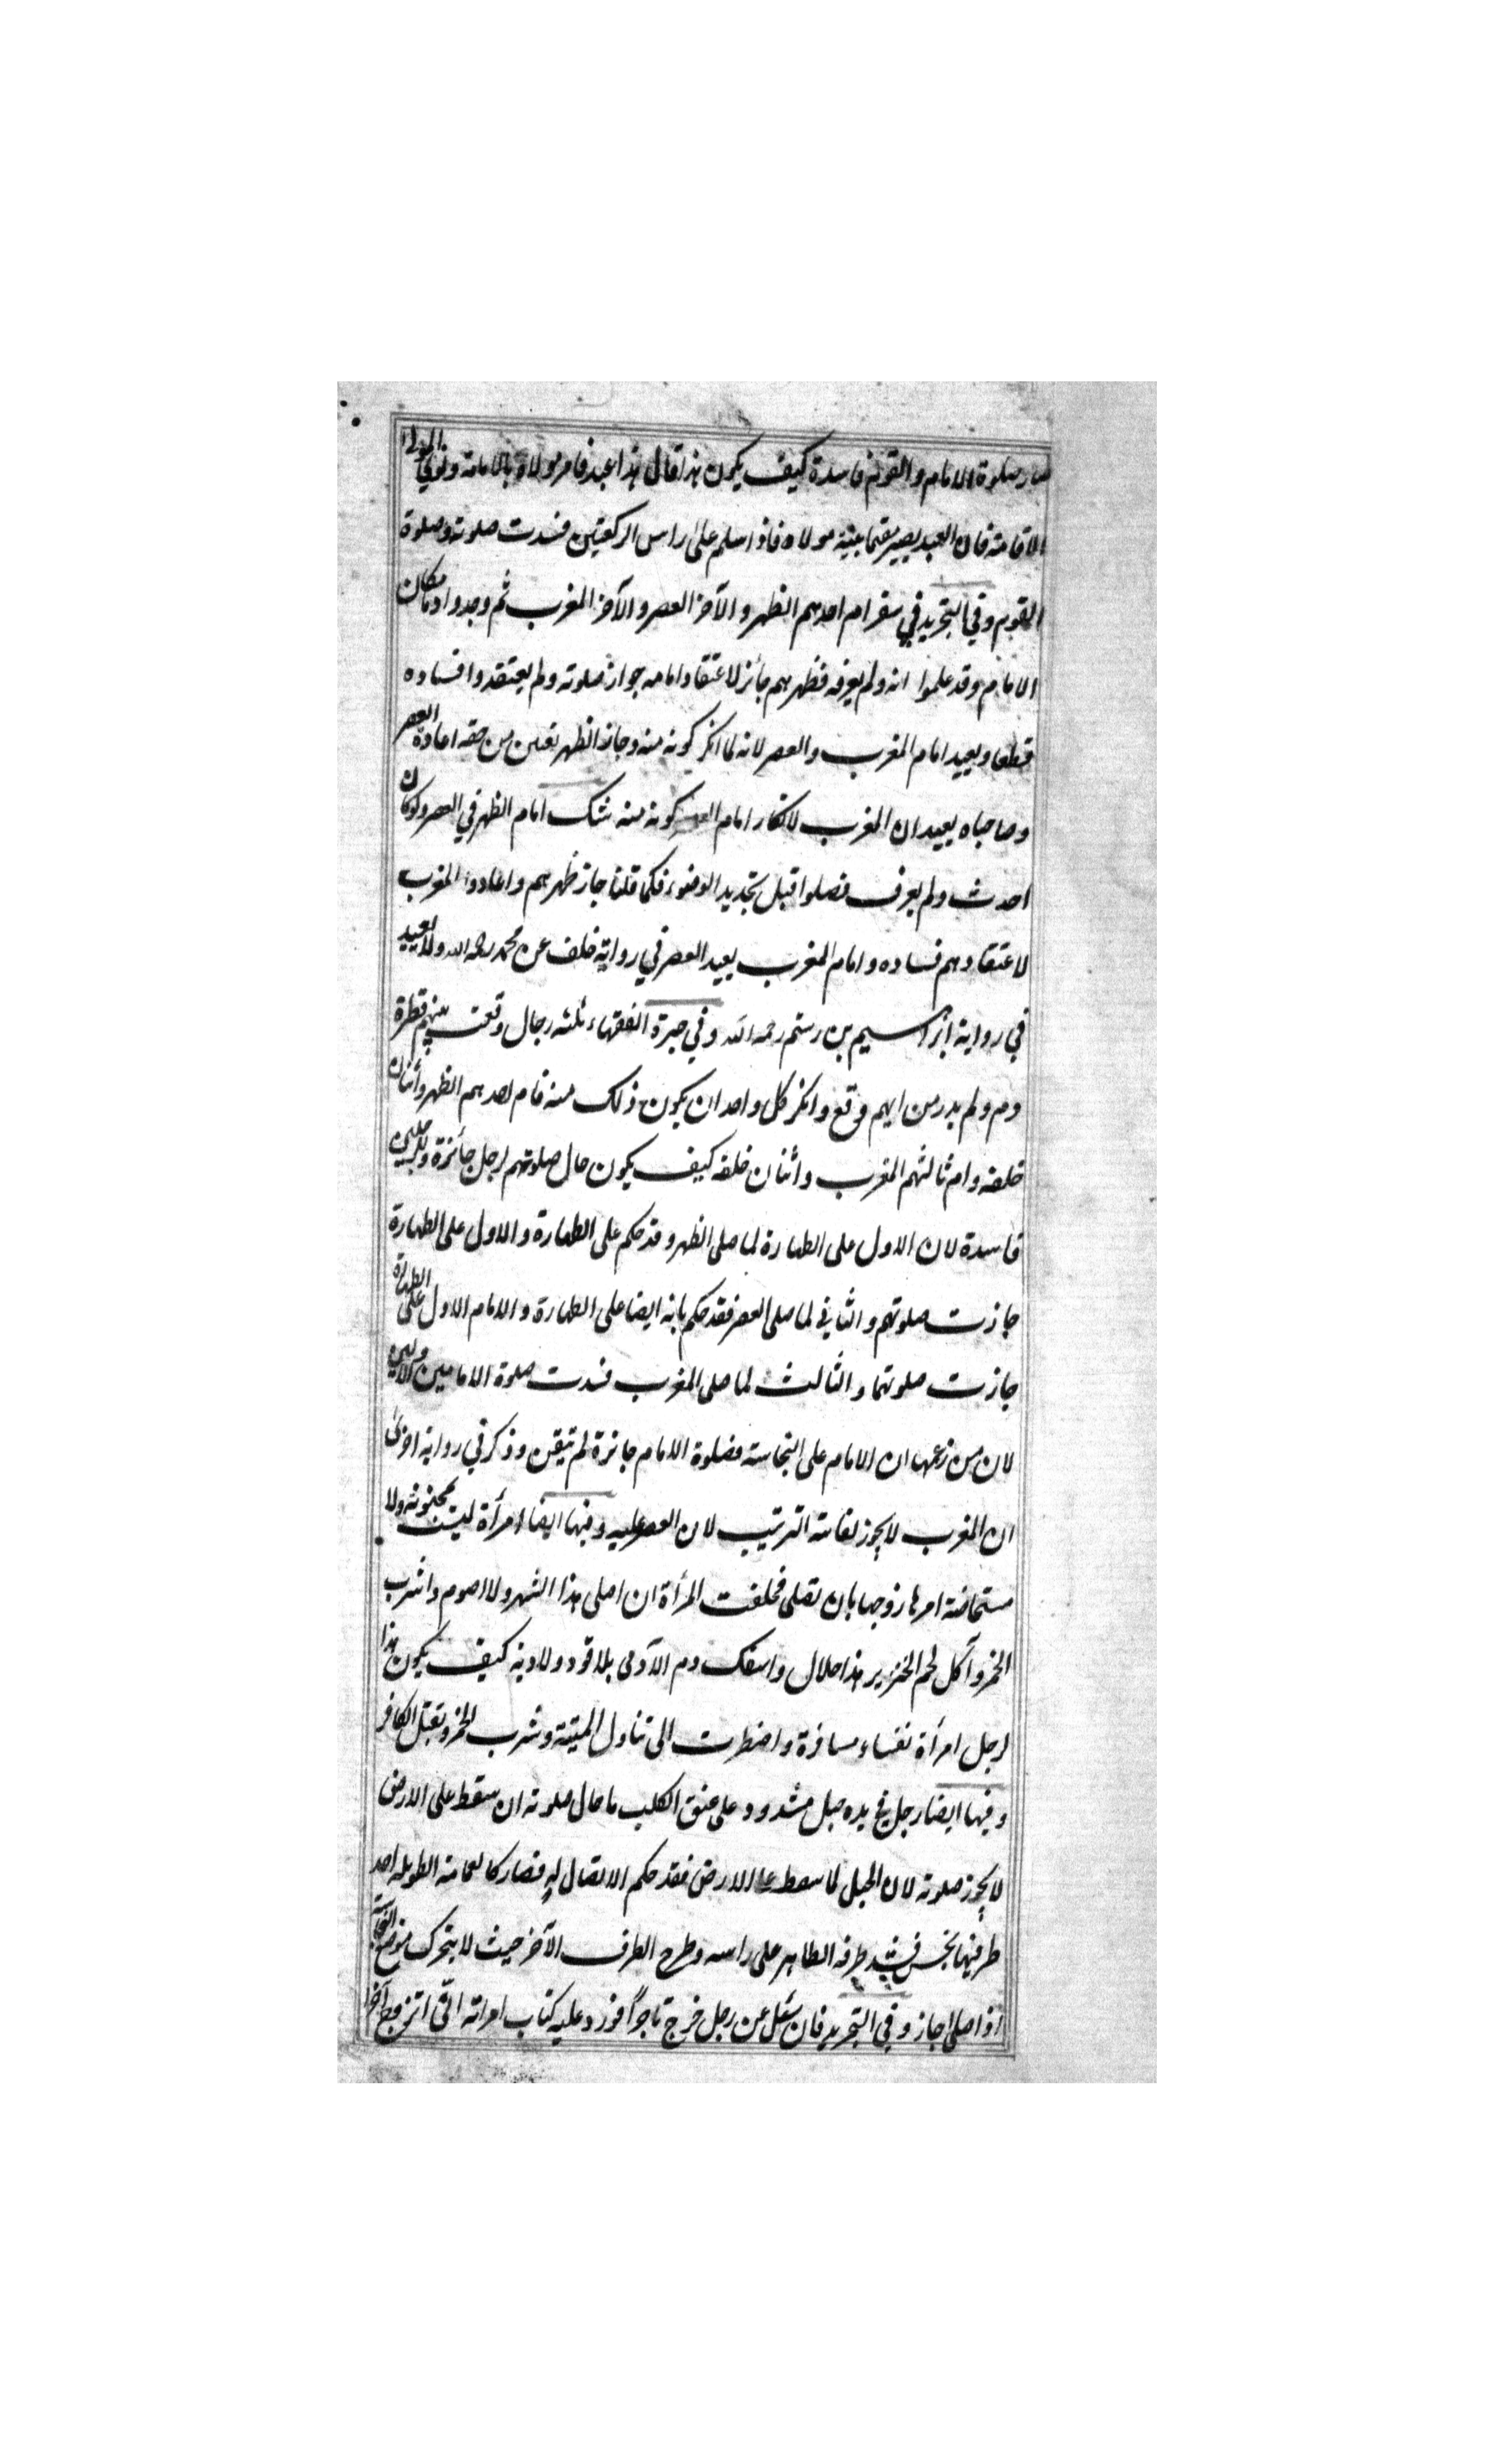 صار صلوة الامام والقوم فاسدة كيف يكون هذا قال هذا عبد فامر مولاه بالامامة ونوى المولى
الاقامة فان العبد يصير مقيما بنية مولاه فاذا سلم على راس الركعتين فسدت صلوته وصلوة
القوم وفي التجريد في سفر ام احدهم الظهر والآخر العصر والآخر المغرب ثم وجدوا دما مكان
الامام وقد علموا انه ولم يعرفه فظهرهم جائز لاعتقاد امامه جواز صلوته ولم يعتقدوا فساده
قطعا ويعيد امام المغرب والعصر لانه لما انكر كونه منه وجاز الظهر تعين من حقه اعادة العصر
وصاحباه يعيدان المغرب لانكار امام كونه منه شك امام الظهر في العصر ولو كان
احدث ولم يعرف فصلوا قبل تجديد الوضوء فكما قلنا جاز ظهرهم واعادوا المغرب
لاعتقادهم فساده وامام المغرب يعيد العصر في رواية خلف عن محمد رحمه الله ولا يعيد
في رواية ابراهيم بن رستم رحمه الله وفي حيرة الفقهاء ثلثة رجال وقعت بينهم قطرة
دم ولم يدر من ايهم وقع وانكر كل واحد ان يكون ذلك منه فام احدهم الظهر واثنان
خلفه وام ثالثهم المغرب واثنان خلفه كيف يكون حال صلوتهم لرجل جائزة وللرجلين
فاسدة لان الاول على الطهارة لما صلى الظهر وقد حكم على الطهارة والاول على الطهارة
جازت صلوتهم والثاني لما صلى العصر فقد حكم بانه ايضا على الطهارة والامام الاول على الطهارة
جازت صلوتهما والثالث لما صلى المغرب فسدت صلوة الامامين الاولين
لان من زعمها ان الامام على النجاسة فصلوة الامام جائزة لم تيقن وذكر في رواية اخرى
ان المغرب لا يجوز لفائتة الترتيب لان العصر عليه وفيها ايضا امرأة ليست بمجنونة ولا
مستحاضة امرها زوجها بان تصلي فحلفت المرأة ان اصلي هذا الشهر ولا اصوم واشرب
الخمر وآكل لحم الخنزير هذا حلال واسفك دم الآدمي بلا قود ولا دية كيف يكون هذا
لرجل امرأة نفساء مسافرة واضطرت الى تناول الميتة وشرب الخمر وبقتل الكافر
وفيها ايضا رجل في يده حبل مشدود على عنق الكلب ما حال صلوته ان سقط على الارض
لا يجوز صلوته لان الحبل لما سقط على الارض فقد حكم الاتصال له فصار كالعمامة الطويلة احد
طرفيها نجس فشد طرفه الطاهر على راسه وطرح الطرف الآخر حيث لا يتحرك موضع النجاسة
اذا صلى جاز وفي التجريد فان سئل عن رجل خرج تاجرا فورد عليه كتاب امراته اني اتزوج آخرا